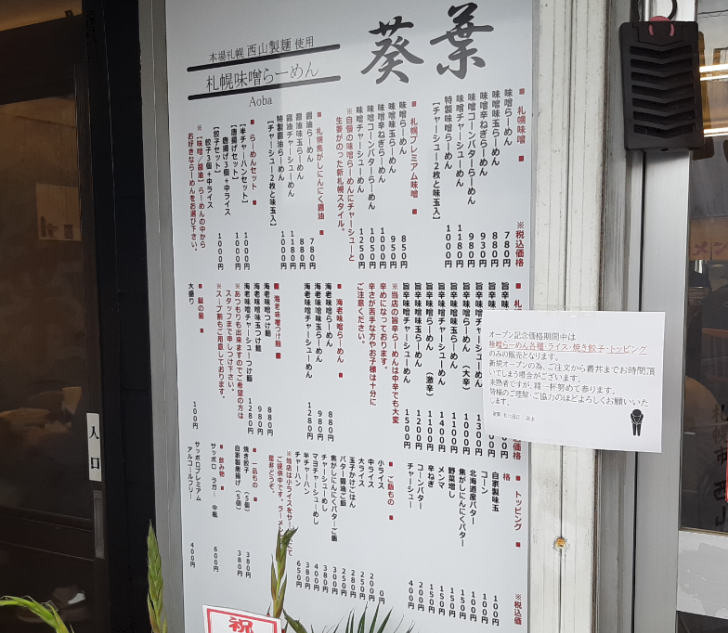 葵葉
本場札幌 西山製麺 使用
札幌味噌らーめん
Aoba
※税込価格
■ 札幌味噌 ■
味噌らーめん 780円
味噌味玉らーめん 880円
味噌辛ねぎらーめん 930円
味噌コーンバターらーめん 980円
味噌チャーシューめん 1180円
特製味噌らーめん 1000円
【チャーシュー2枚と味玉入】
■ 札幌プレミアム味噌 ■
味噌らーめん 850円
味噌味玉らーめん 950円
味噌辛ねぎらーめん 1000円
味噌コーンバターらーめん 1050円
味噌チャーシューめん 1250円
※自慢の味噌らーめんにチャーシューと
生姜がのった新札幌スタイル。
■ 札幌焦がしにんにく醤油 ■
醤油らーめん 780円
醤油味玉らーめん 880円
醤油チャーシューめん 1180円
特製醤油らーめん 1000円
【チャーシュー2枚と味玉入】
■ らーめんセット ■
【半チャーハンセット】 1000円
【唐揚げセット】 1000円
唐揚げ3個+中ライス
【餃子セット】 1000円
餃子3個+中ライス
※【味噌/醤油】らーめんの中から
お好きならーめんをお選び下さい。
※税込価格
旨辛味噌らーめん(大辛)
旨辛味噌らーめん(激辛)
旨辛味噌チャーシューめん
※当店の旨辛らーめんは中辛でも大変
辛めになっております。
辛さが苦手な方やお子様は十分に
ご注意ください。
■ 海老味噌らーめん ■
海老味噌らーめん 880円
海老味噌味玉らーめん 980円
海老味噌チャーシューめん 1280円
■ 海老味噌つけ麺 ■
海老味噌つけ麺 880円
海老味噌味玉つけ麺 980円
海老味噌チャーシューつけ麺 1280円
※あつもりも出来ますのでご希望の方は
スタッフまで申しつけ下さい。
※スープ割もご用意しております。
■ 麺の量 ■
大盛り 100円
■ トッピング ■
※税込価格
自家製味玉 100円
コーン 100円
北海道産バター 100円
焦がしにんにくバター 150円
野菜増し 150円
メンマ 150円
辛ねぎ 150円
コーンバター 200円
チャーシュー 400円
■ ご飯もの ■
小ライス 0円
中ライス
大ライス 200円
玉子かけごはん 250円
バター醤油ご飯
焦がしにんにくバターご飯
チャーシューめし
マヨチャーシューめし 400円
半チャーハン
チャーハン 650円
■ 一品もの ■
焼き餃子(5個) 380円
自家製唐揚げ(5個) 380円
■ 飲み物 ■
サッポロ ラガー 中瓶 600円
サッポロプレミアム
アルコールフリー 400円
オープン記念価格期間中は
味噌らーめん各種・ライス・焼き餃子・トッピング
のみの販売となります。
新規オープンの為、ご注文から着丼までお時間頂
いてしまう場合がございます。
未熟者ですが、精一杯努めて参ります。
皆様のご理解・ご協力のほどよろしくお願いいた
します。
入口
祝